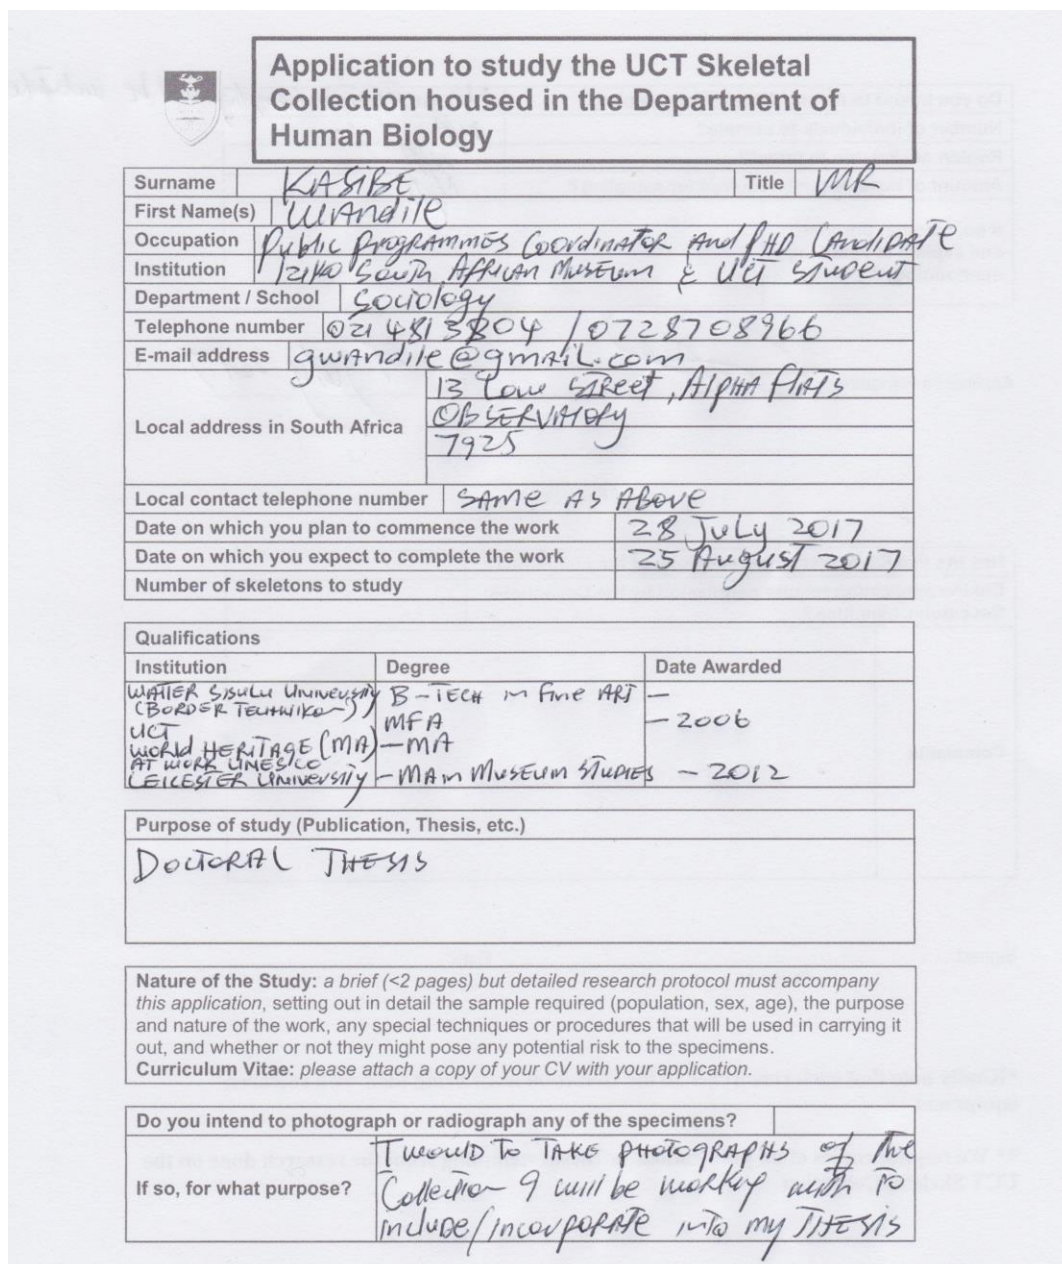 Application to study the UCT Skeletal
Collection housed in the Department of
Human Biology
Surname KASIBE Title MR
First Name(s) WANdilE
Occupation Public Programmes Coordinator And PHD CANdidATE
Institution IZIKO South AFRICAN MUSEUM & UCT STUDENT
Department / School Sociology
Telephone number 021 4813804 / 0728708966
E-mail address gwandile@gmail.com
13 Lowe STREET, AlPHA FlATS
Local address in South Africa OBSERVATORY
7925
Local contact telephone number SAME AS ABOVE
Date on which you plan to commence the work 28 July 2017
Date on which you expect to complete the work 25 August 2017
Number of skeletons to study
Qualifications
Institution Degree Date Awarded
WALTER SISULU UNIVERSITY B-TECH in Fine ART –
(BORDER TECHNIKON)
UCT MFA – 2006
WORLD HERITAGE (MA) – MA
AT WORK UNESCO
LEICESTER UNIVERSITY – MA in MUSEUM STUDIES – 2012
Purpose of study (Publication, Thesis, etc.)
DOCTORAL THESIS
Nature of the Study: a brief (<2 pages) but detailed research protocol must accompany
this application, setting out in detail the sample required (population, sex, age), the purpose
and nature of the work, any special techniques or procedures that will be used in carrying it
out, and whether or not they might pose any potential risk to the specimens.
Curriculum Vitae: please attach a copy of your CV with your application.
Do you intend to photograph or radiograph any of the specimens?
I WOULD TO TAKE PHOTOGRAPHS of the
If so, for what purpose? Collection I will be working with TO
include/incorporate into my THESIS